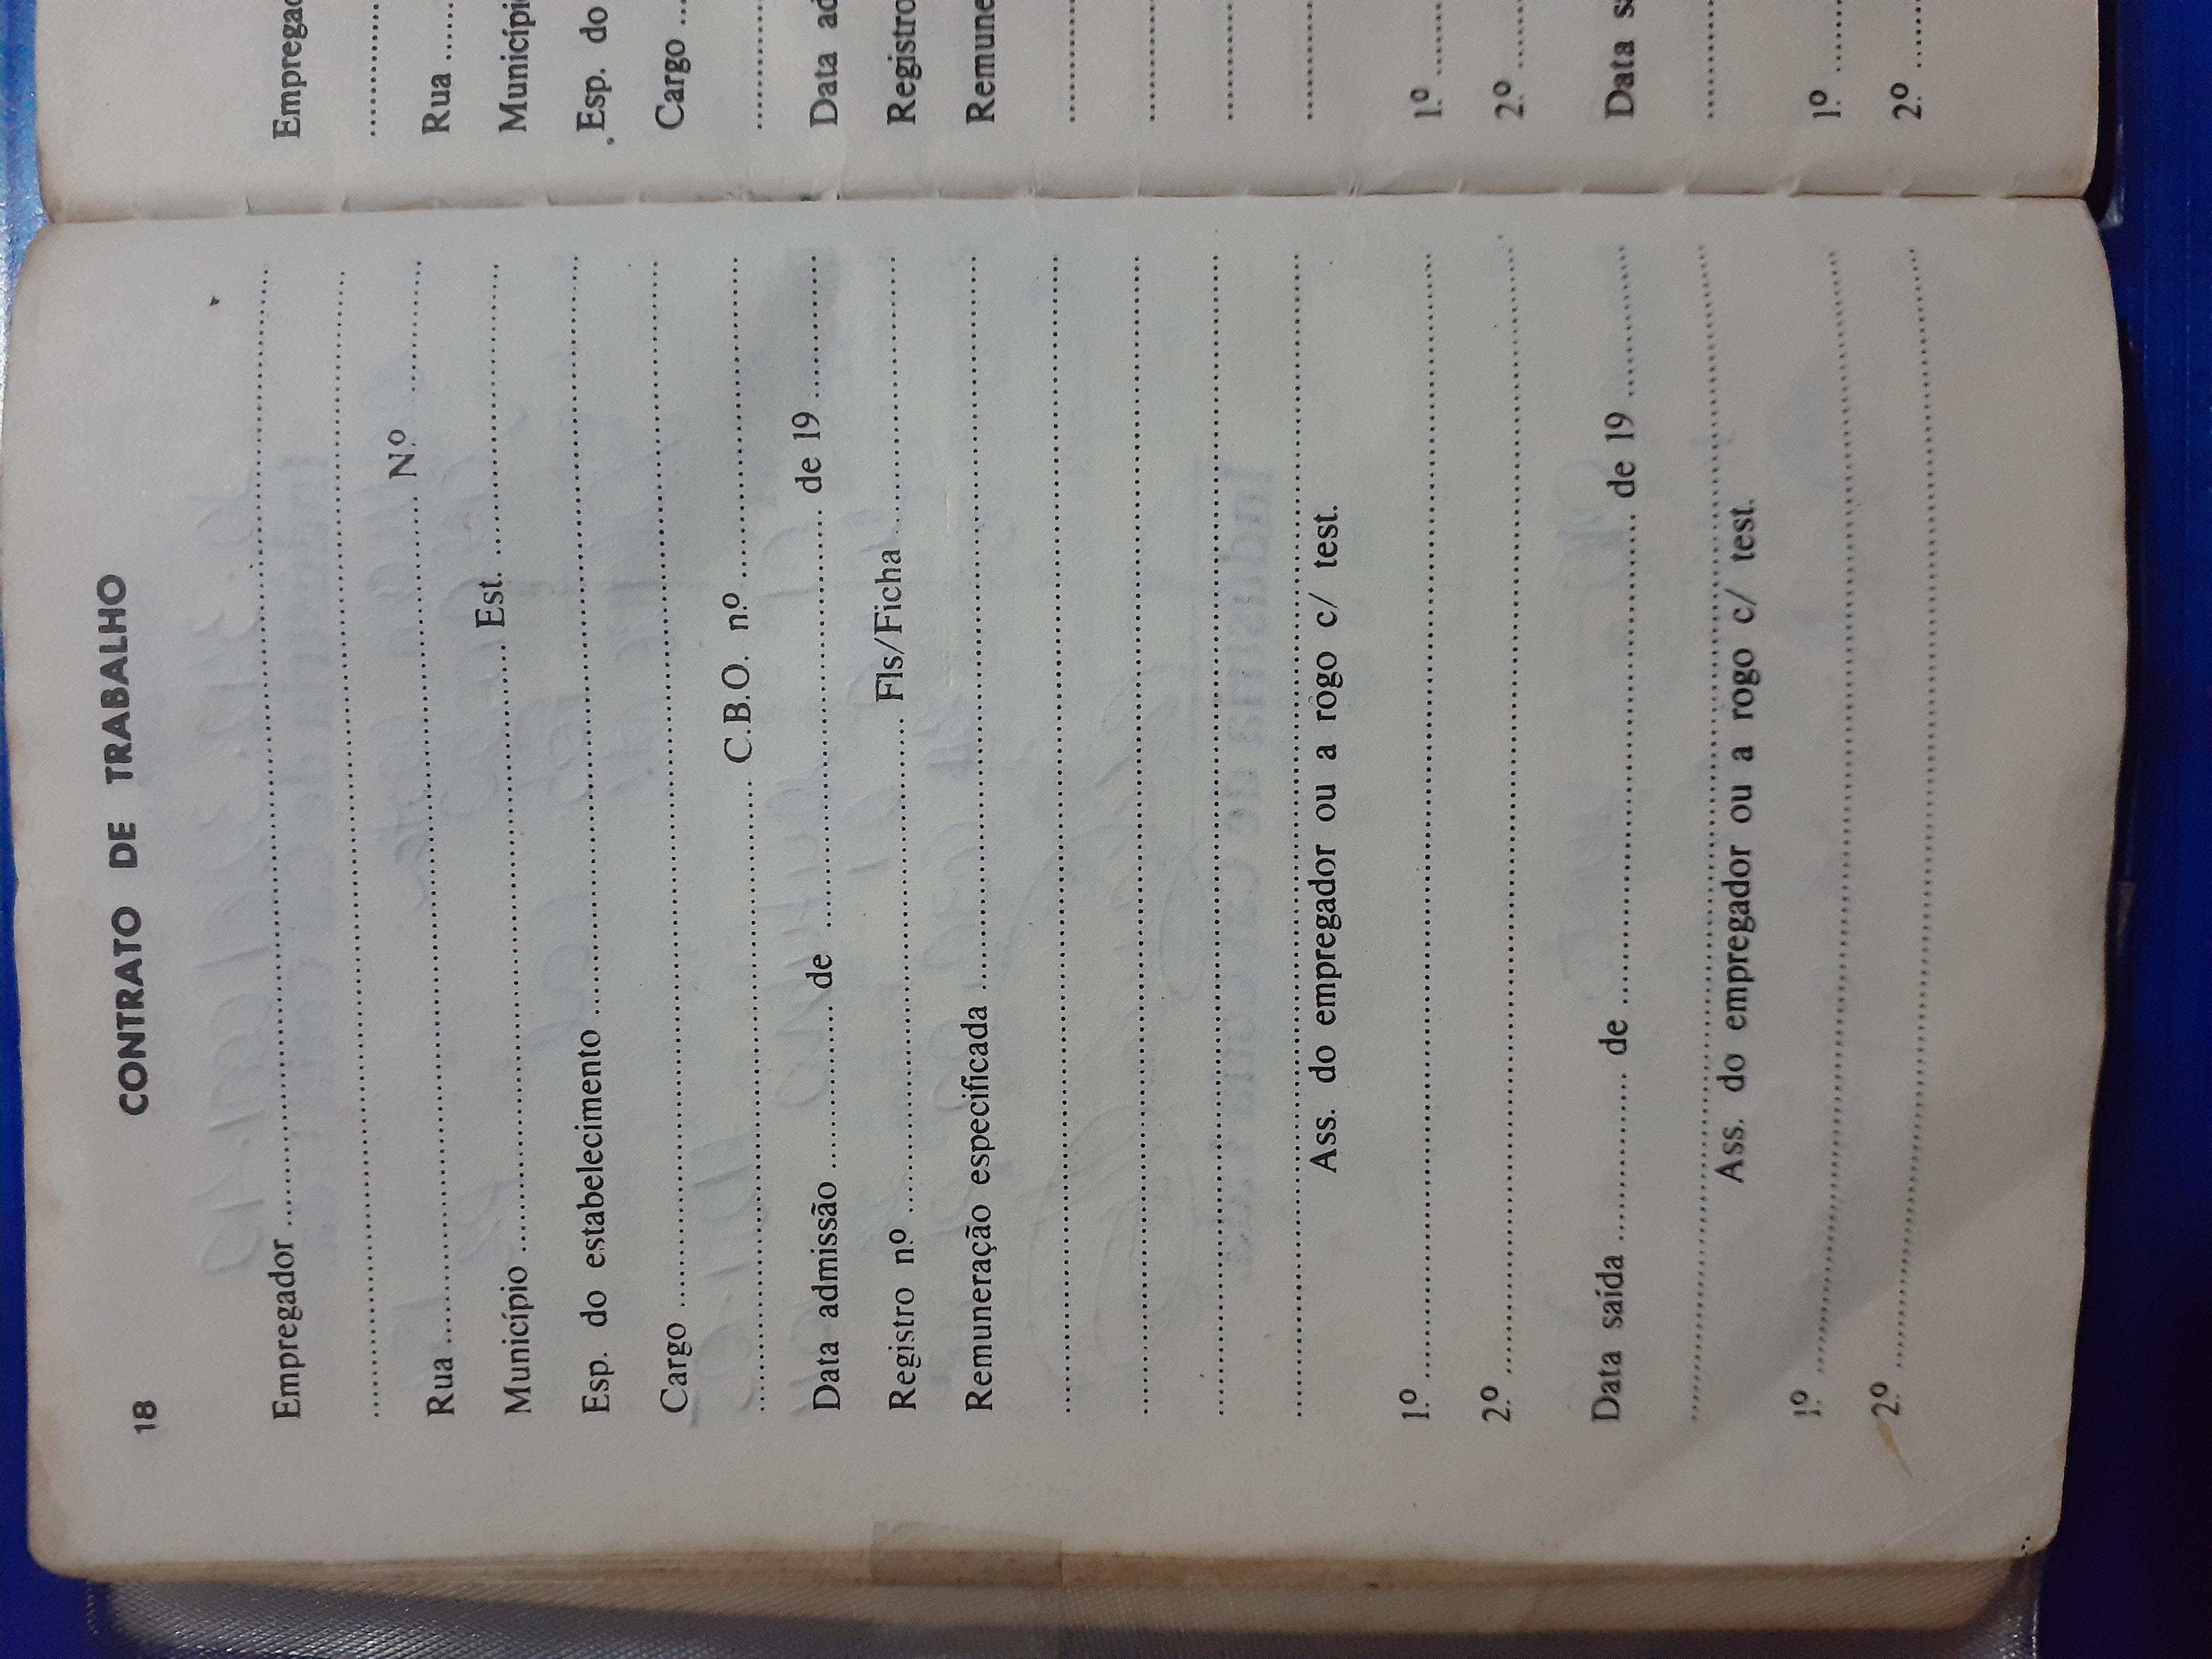 18
CONTRATO DE TRABALHO
Empregador ........................................
........................................
Rua ........................................ N.º ............
Município ........................................ Est. ....................
Esp. do estabelecimento ........................................
Cargo ........................................
........................................ C.B.O. n.º ....................
Data admissão ............ de ........................................ de 19 ............
Registro n.º ........................................ Fls/Ficha ....................
Remuneração especificada ........................................
........................................
........................................
........................................
........................................
Ass. do empregador ou a rogo c/ test.
1.º ........................................
2.º ........................................
Data saída ............ de ........................................ de 19 ............
........................................
Ass. do empregador ou a rogo c/ test.
1.º ........................................
2.º ........................................
Rua ......
Esp. do
Cargo ...
Registro
1.º ......
2.º ......
1.º ......
2.º ......